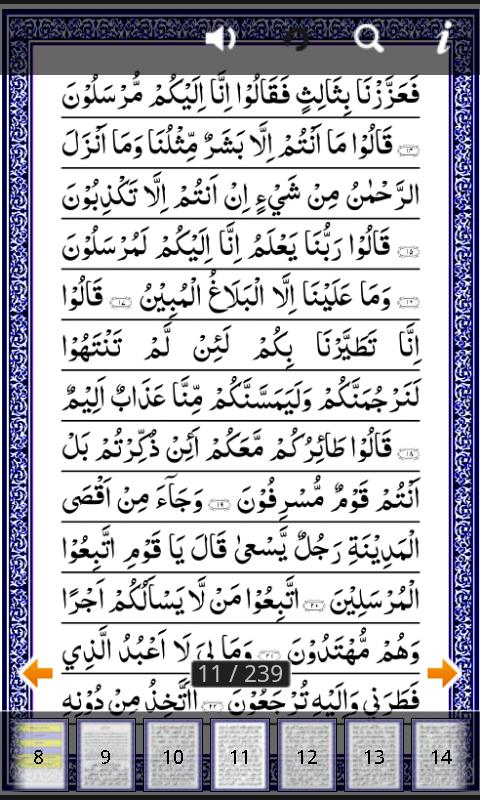 فَعَزَّزْنَا بِثَالِثٍ فَقَالُوْا اِنَّا اِلَيْكُمْ مُّرْسَلُوْنَ
﴿١٤﴾ قَالُوْا مَا اَنْتُمْ اِلَّا بَشَرٌ مِّثْلُنَا وَمَا اَنْزَلَ
الرَّحْمٰنُ مِنْ شَيْءٍ اِنْ اَنتُمْ اِلَّا تَكْذِبُوْنَ
﴿١٥﴾ قَالُوْا رَبُّنَا يَعْلَمُ اِنَّا اِلَيْكُمْ لَمُرْسَلُوْنَ
﴿١٦﴾ وَمَا عَلَيْنَا اِلَّا الْبَلَاغُ الْمُبِيْنُ ﴿١٧﴾ قَالُوْا
اِنَّا تَطَيَّرْنَا بِكُمْ لَئِنْ لَّمْ تَنْتَهُوْا
لَنَرْجُمَنَّكُمْ وَلَيَمَسَّنَّكُمْ مِّنَّا عَذَابٌ اَلِيْمٌ
﴿١٨﴾ قَالُوْا طَائِرُكُمْ مَّعَكُمْ اَئِنْ ذُكِّرْتُمْ بَلْ
اَنْتُمْ قَوْمٌ مُّسْرِفُوْنَ ﴿١٩﴾ وَجَآءَ مِنْ اَقْصَى
الْمَدِيْنَةِ رَجُلٌ يَّسْعىٰ قَالَ يَا قَوْمِ اتَّبِعُوْا
الْمُرْسَلِيْنَ ﴿٢٠﴾ اتَّبِعُوْا مَنْ لَّا يَسْاَلُكُمْ اَجْرًا
وَهُمْ مُّهْتَدُوْنَ ﴿٢١﴾ وَمَا لِيَ لَا اَعْبُدُ الَّذِي
11 / 239
فَطَرَنِي وَاِلَيْهِ تُرْجَعُوْنَ ﴿٢٢﴾ اَاَتَّخِذُ مِنْ دُوْنِهِ
8 9 10 11 12 13 14